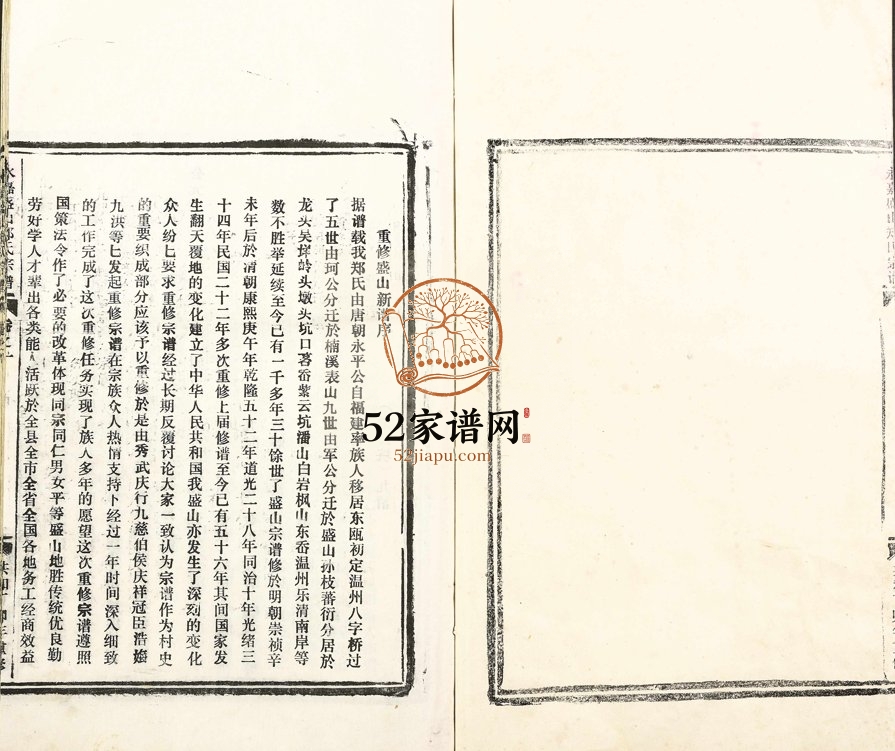 重修盛山新谱序
据谱载我郑氏由唐朝永平公自福建率族人移居东瓯初定温州八字桥过
了五世由珂公分迁於楠溪表山九世由军公分迁於盛山孙枝蕃衍分居於
龙头吴垟岭头墩头坑口茗岙紫云坑潘山白岩枫山东岙温州乐清南岸等
数不胜举延续至今已有一千多年三十馀世了盛山宗谱修於明朝崇祯辛
未年后於清朝康熙庚午年乾隆五十二年道光二十八年同治十年光绪三
十四年民国二十二年多次重修上届修谱至今已有五十六年其间国家发
生翻天覆地的变化建立了中华人民共和国我盛山亦发生了深刻的变化
众人纷纷要求重修宗谱经过长期反覆讨论大家一致认为宗谱作为村史
的重要织成部分应该予以重修於是由秀武庆行九慈伯侯庆祥冠臣浩
九洪等七发起重修宗谱在宗族众人热情支持下经过一年时间深入细致
的工作完成了这次重修任务实现了族人多年的愿望这次重修宗谱遵照
国策法令作了必要的改革体现同宗同仁男女平等盛山地胜传统优良勤
劳好学人才辈出各类能人活跃於全县全市全省全国各地务工经商效益
永嘉盛山郑氏宗谱 卷之
52家谱网
52jiapu.com